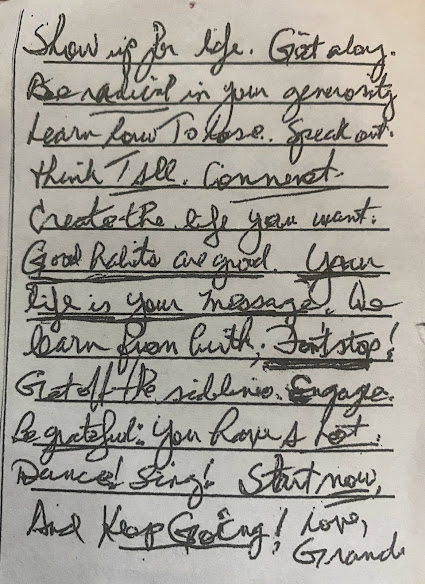 Show up for life. Get along.
Be radical in your generosity
Learn how To lose. Speak out.
think Tall. Connect.
Create the life you want.
Good habits are good. Your
life is your message. We
learn from birth. Don't stop!
Get off the sidelines. Engage.
Be grateful: you have a lot.
Dance! Sing! Start now,
And Keep Going! Love,
Grand